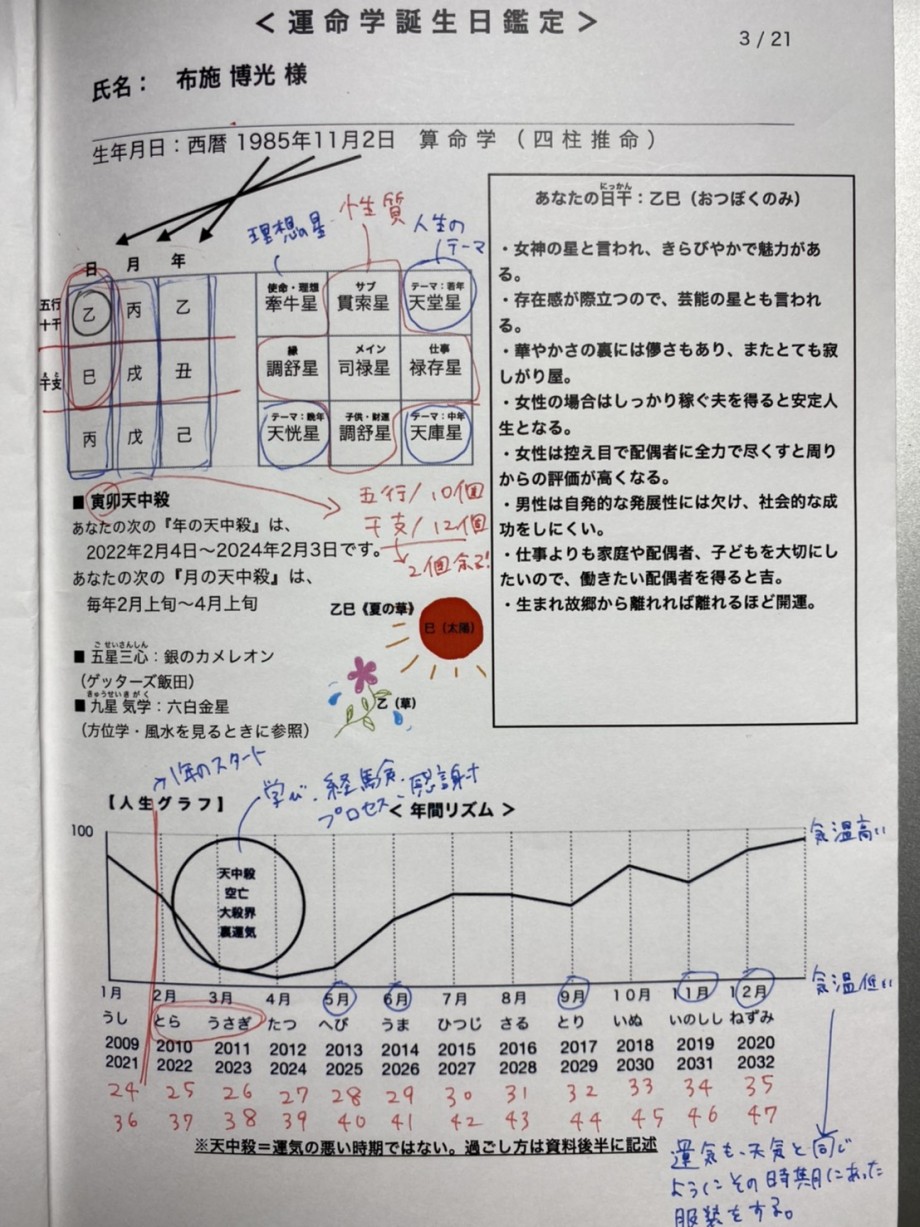 ＜運命学誕生日鑑定＞
3 / 21
氏名： 布施 博光 様
生年月日：西暦 1985年11月2日 算命学（四柱推命）
理想の星
性質
人生の
テーマ
日 月 年
五行
十干
乙 丙 乙
干支
巳 戌 丑
丙 戊 己
使命・理想
牽牛星
サブ
貫索星
テーマ：若年
天堂星
縁
調舒星
メイン
司禄星
仕事
禄存星
テーマ：晩年
天恍星
子供・財運
調舒星
テーマ：中年
天庫星
にっかん
あなたの日干：乙巳（おつぼくのみ）
・女神の星と言われ、きらびやかで魅力があ
る。
・存在感が際立つので、芸能の星とも言われ
る。
・華やかさの裏には儚さもあり、またとても寂
しがり屋。
・女性の場合はしっかり稼ぐ夫を得ると安定人
生となる。
・女性は控え目で配偶者に全力で尽くすと周り
からの評価が高くなる。
・男性は自発的な発展性には欠け、社会的な成
功をしにくい。
・仕事よりも家庭や配偶者、子どもを大切にし
たいので、働きたい配偶者を得ると吉。
・生まれ故郷から離れれば離れるほど開運。
■ 寅卯天中殺
あなたの次の『年の天中殺』は、
2022年2月4日〜2024年2月3日です。
あなたの次の『月の天中殺』は、
毎年2月上旬〜4月上旬
五行/10個
干支/12個
2個余る!
乙巳《夏の華》
巳（太陽）
乙（草）
ごせいさんしん
■ 五星三心：銀のカメレオン
（ゲッターズ飯田）
きゅうせいきがく
■ 九星 気学：六白金星
（方位学・風水を見るときに参照）
1年のスタート
学び、経験、感謝す
プロセス、
【人生グラフ】
＜ 年間リズム ＞
100
気温高い
天中殺
空亡
大殺界
裏運気
気温低い
1月 2月 3月 4月 5月 6月 7月 8月 9月 10月 11月 12月
うし とら うさぎ たつ へび うま ひつじ さる とり いぬ いのしし ねずみ
2009 2010 2011 2012 2013 2014 2015 2016 2017 2018 2019 2020
2021 2022 2023 2024 2025 2026 2027 2028 2029 2030 2031 2032
24 25 26 27 28 29 30 31 32 33 34 35
36 37 38 39 40 41 42 43 44 45 46 47
※天中殺＝運気の悪い時期ではない。過ごし方は資料後半に記述
運気も、天気と同じ
ようにその時期にあった
服装をする。